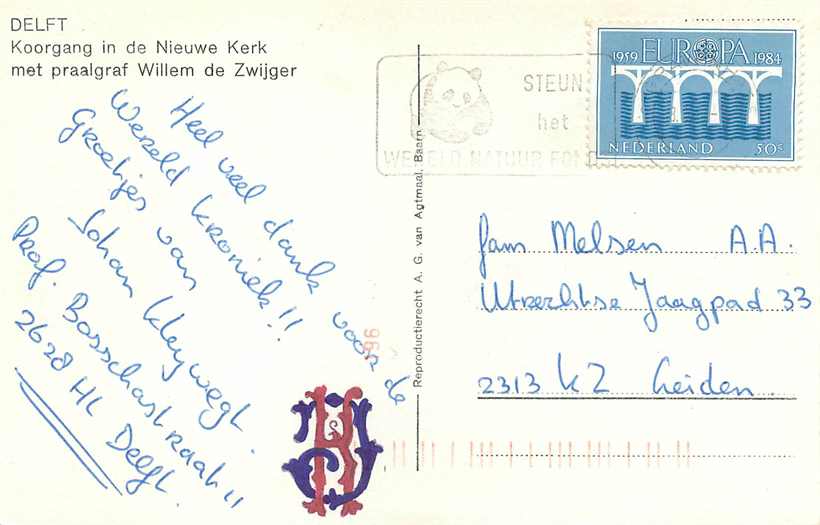 DELFT
Koorgang in de Nieuwe Kerk
met praalgraf Willem de Zwijger
Heel veel dank voor de
Wereld kroniek!!
Groetjes van
Johan Kleywegt.
Prof. Bosschastraat 11
2628 HL Delft.
96
Reproductierecht A. G. van Agtmaal, Baarn
STEUN
het
WERELD NATUUR FONDS
1959 EUROPA 1984
NEDERLAND 50c
fam Melsen A.A.
Utrechtse Jaagpad 33
2313 KZ Leiden.